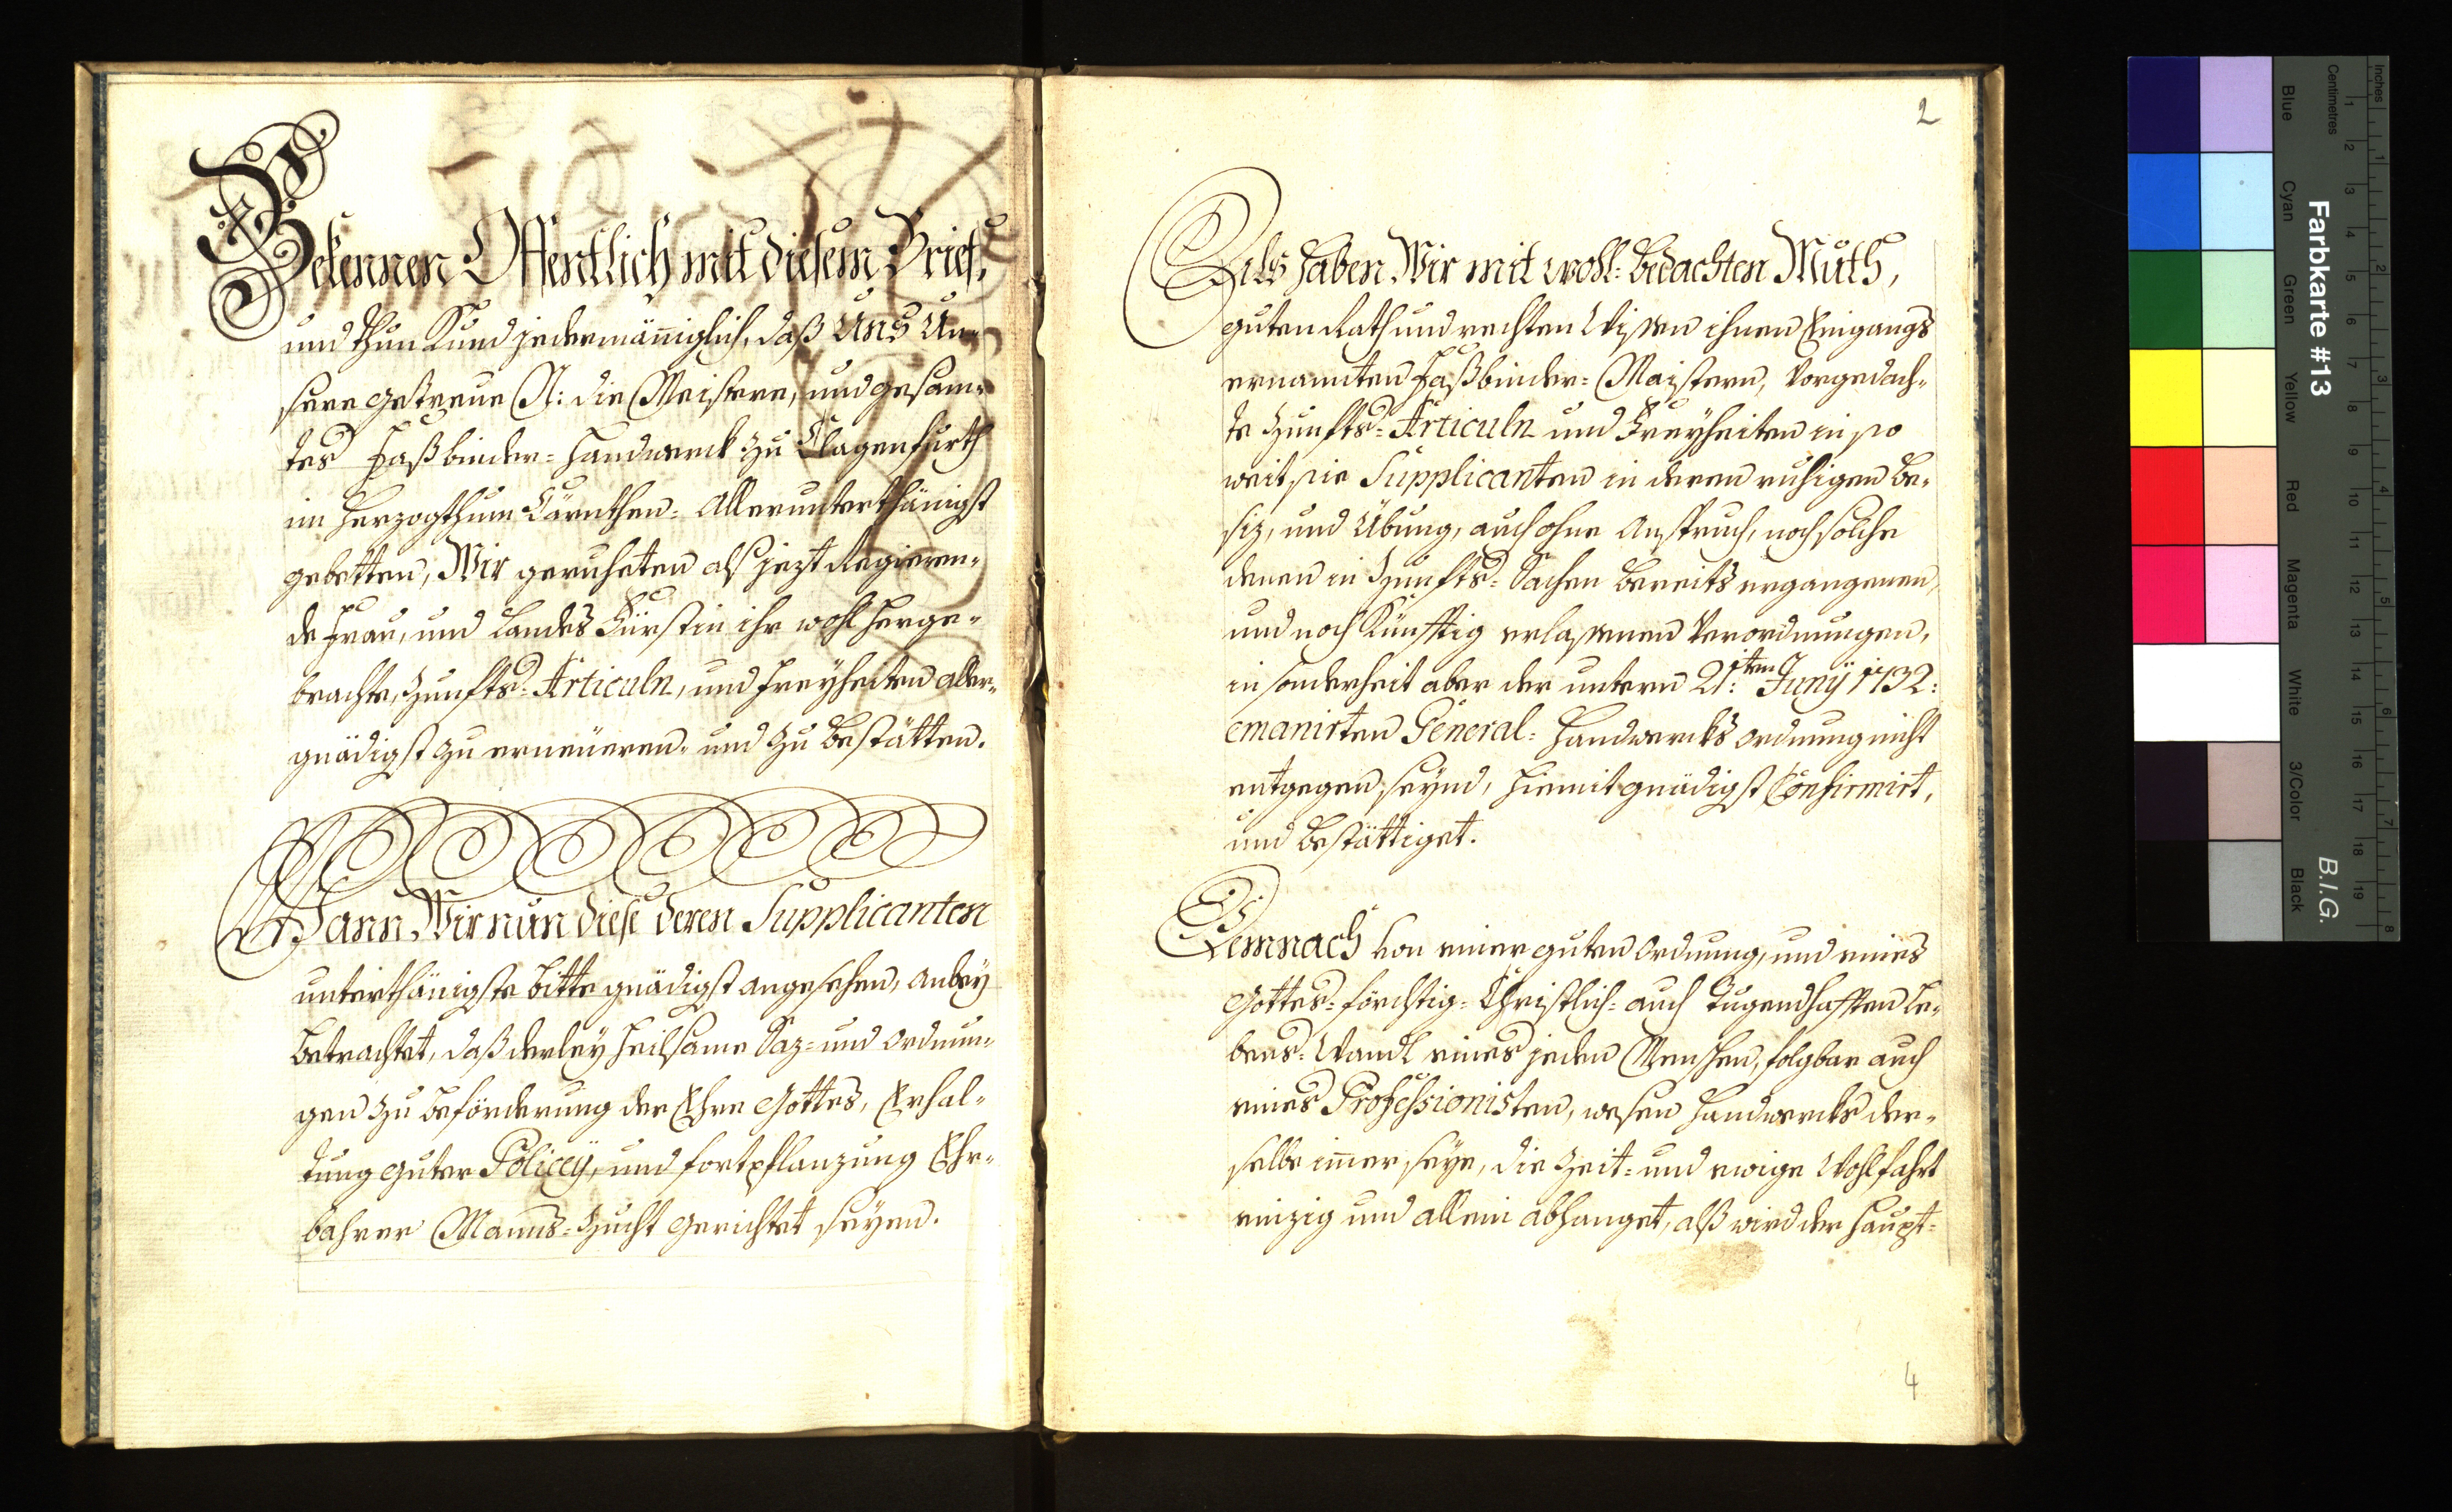 Bekennen Offentlich mit diesem Brief,
und thun Kund jedermäniglich, daß Uns Un-
sere getreue N: die Meistere, und gesam-
tes Faßbinder-Handwerck zu Clagenfurth
im Herzogthum Cärnthen: Allerunterthänigst
gebetten, Wir geruheten als jezt Regieren-
de Frau, und Landes Fürstin ihr wohl herge-
brachte Zunffts-Articuln, und Freyheiten aller-
gnädigst zu erneüeren, und zu bestätten.
Wann Wir nun diese deren Supplicanten
unterthänigste Bitte gnädigst angesehen, anbey
betrachtet, daß derley heilsame Saz- und Ordnun-
gen zu beförderung der Ehre Gottes, Erhal-
tung guter Policeÿ, und fortpflanzung Ehr-
bahrer Manns-Zucht gerichtet seyen.
2
Als haben Wir mit wohl-bedachten Muth,
guten Rath und rechten Wissen ihnen Eingangs
ernannten Faßbinder-Maistern, Vorgedach-
te Zunffts-Articuln und Freyheiten in so
weit sie Supplicanten in deren ruhigen Be-
siz, und Übung, auch ohne Anspruch, noch solche
denen in Zunffts-Sachen bereits ergangenen,
und noch Künfftig erlassenen Verordnungen,
in sonderheit aber der untern 21:ten Junÿ 1732:
emanirten General-Handwercks ordnung nicht
entgegen seynd, hiemit gnädigst Confirmirt,
und bestättiget.
Demnach von einer guten Ordnung, und eines
Gottes-förchtig-Christlich-auch Tugendhafften Le-
bens-Wandl eines jeden Menschen, folgbar auch
eines Professionisten, wessen Handwercks der-
selbe imer seye, die Zeit- und ewige Wohlfahrt
einzig und allein abhanget, alß wird der Haupt-
4
Farbkarte #13
B.I.G.
Inches
Centimetres
Blue
Cyan
Green
Yellow
Red
Magenta
White
3/Color
Black
1 2 3 4 5 6 7 8 9 10 11 12 13 14 15 16 17 18 19
1 2 3 4 5 6 7 8